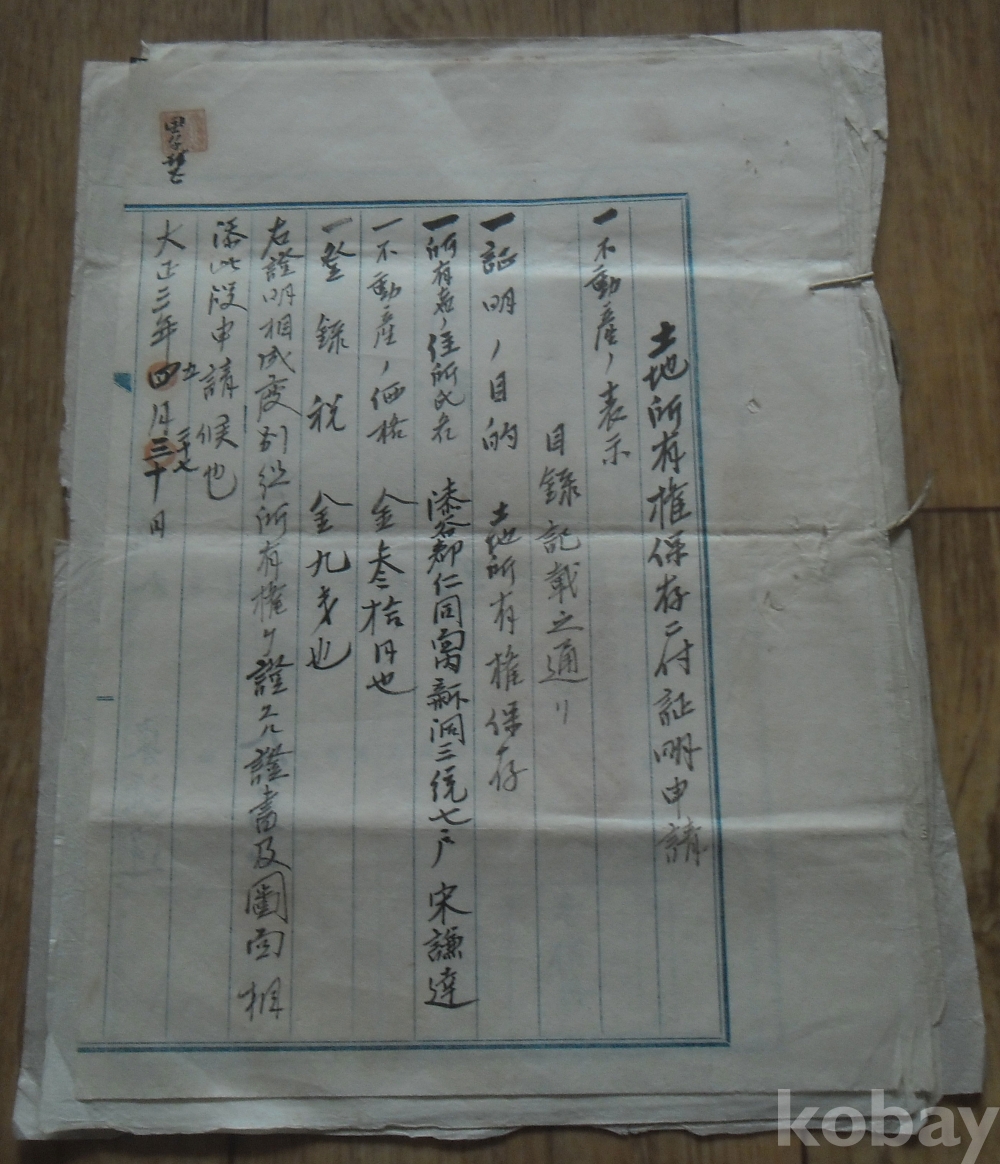 土地所有権保存ニ付証明申請
一不動産ノ表示
目録記載之通リ
一証明ノ目的 土地所有権保存
一所有者ノ住所氏名 漆谷郡仁同面新洞三統七戸 宋謙達
一不動産ノ価格 金参拾円也
一登録税 金九戔也
右證明相成度別紙所有権ヲ證スル證書及圖面相
添此段申請候也
大正三年四月三十日
五 二十七
kobay